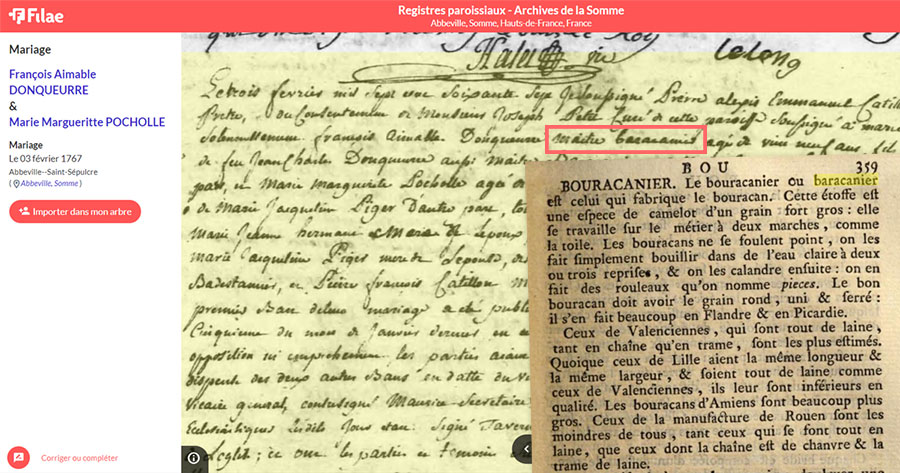 Filae
Registres paroissiaux - Archives de la Somme
Abbeville, Somme, Hauts-de-France, France
Mariage
François Aimable
DONQUEURRE
&
Marie Margueritte POCHOLLE
Mariage
Le 03 février 1767
Abbeville--Saint-Sépulcre
( Abbeville, Somme )
Importer dans mon arbre
Corriger ou compléter
lelong
Le trois fevrier mil Sept cent Soixante Sept Je Soussigné Pierre alexis Emmanuel
Pretre, du Consentement de Monsieur Joseph Petit Curé de cette paroisse Soussigné a marié
Solemnellement françois Aimable Donqueurre maitre baracanier agé de vingt neuf ans
de feu Jean Charles Donqueurre aussi maitre
part, et Marie marguerite Pocholle agée
de Marie Jacqueline Piger Dautre part,
Marie Jeanne hermant
marie Jacqueline Piger mere de l'epouse,
Badestamier, et Pierre françois Catillon
premier Ban de leur mariage a eté publié
Cinquieme du mois de Janvier dernier
opposition ni empechement les parties aiant
dispense des deux autres Bans en datte du
Vicaire general, contresigné Maurice Secretaire
Ecclesiastiques
L'eglise; ce
B O U 359
BOURACANIER. Le bouracanier ou baracanier
est celui qui fabrique le bouracan. Cette étoffe est
une espece de camelot d'un grain fort gros : elle
se travaille sur le métier à deux marches, comme
la toile. Les bouracans ne se foulent point, on les
fait simplement bouillir dans de l'eau claire à deux
ou trois reprises, & on les calandre ensuite : on en
fait des rouleaux qu'on nomme pieces. Le bon
bouracan doit avoir le grain rond, uni & serré :
il s'en fait beaucoup en Flandre & en Picardie.
Ceux de Valenciennes, qui sont tout de laine,
tant en chaîne qu'en trame, sont les plus estimés.
Quoique ceux de Lille aient la même longueur &
la même largeur, & soient tout de laine comme
ceux de Valenciennes, ils leur sont inférieurs en
qualité. Les bouracans d'Amiens sont beaucoup plus
gros. Ceux de la manufacture de Rouen sont les
moindres de tous, tant ceux qui se font tout en
laine, que ceux dont la chaîne est de chanvre & la
trame de laine.